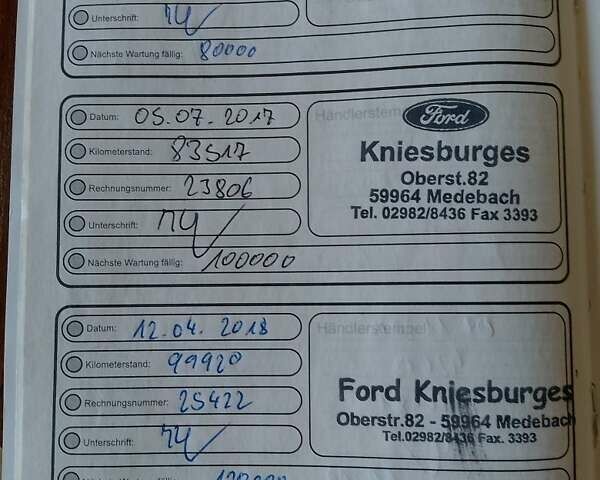 Unterschrift:
Nächste Wartung fällig: 80000
Datum: 05.07.2017
Händlerstempel
Ford
Kilometerstand: 83517
Kniesburges
Rechnungsnummer: 23806
Oberst.82
59964 Medebach
Unterschrift:
Tel. 02982/8436 Fax 3393
Nächste Wartung fällig: 100000
Datum: 12.04.2018
Händlerstempel
Kilometerstand: 99920
Ford Kniesburges
Rechnungsnummer: 25422
Oberstr.82 - 59964 Medebach
Unterschrift:
Tel.02982/8436 Fax. 3393